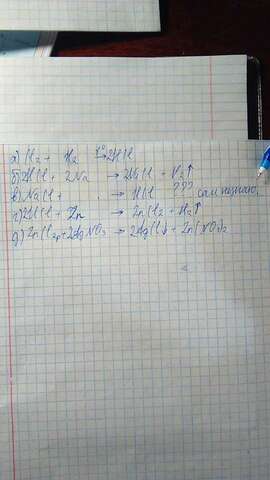 а) Cl₂ + H₂ t°→ 2HCl
б) 2HCl + 2Na → 2NaCl + H₂↑
в) NaCl + → HCl ??? сам незнаю,
г) 2HCl + Zn → ZnCl₂ + H₂↑
д) ZnCl₂ + 2AgNO₃ → 2AgCl↓ + Zn(NO₃)₂